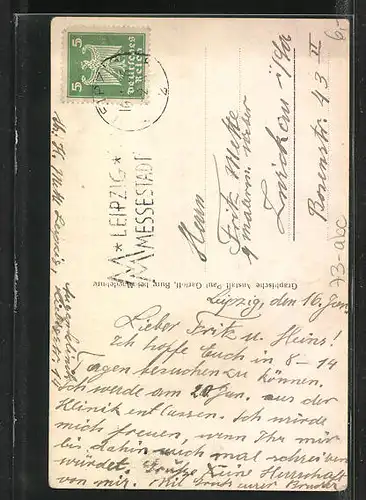 5 5
Deutsches
Reich
* LEIPZIG *
MESSESTADT
Herrn
Fritz
Zwickau i/Sa
Rosenstr. 43 II
6,-
73-abc
Graphische Anstalt Paul Garn
Burg bei Magdeburg
Leipzig, den 16. Jan.
Lieber Fritz u. Heins!
Ich hoffe Euch in 8-14
Tagen besuchen zu können.
Ich werde am 20. Jan. aus der
Klinik entlassen. Ich würde
mich freuen, wenn Ihr mir
bis dahin auch mal schreiben
würdet. Grüße Eure Herrschaft
von mir. Mit Gruß Euer Bruder